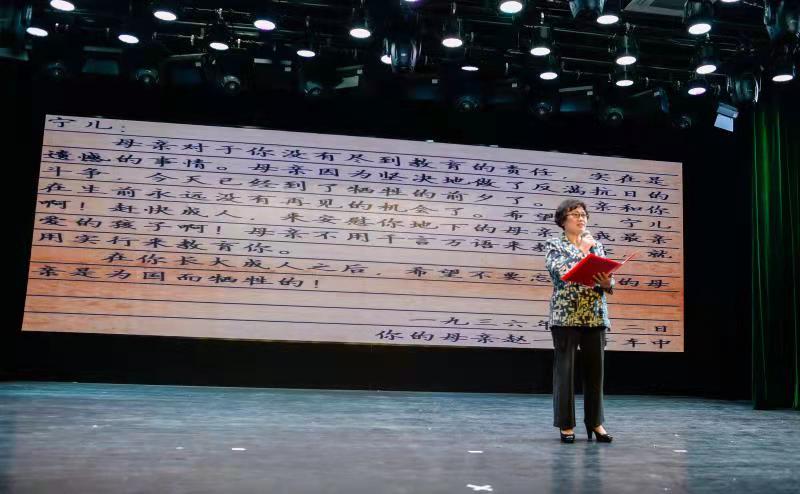 宁儿：
母亲对于你没有尽到教育的责任，实在是
遗憾的事情。母亲因为坚决地做了反满抗日的
斗争，今天已经到了牺牲的前夕了。 亲和你
在生前永远没有再见的机会了。希望 宁儿
啊！赶快成人，来安慰你地下的母亲！我最亲
爱的孩子啊！母亲不用千言万语来教 就
用实行来教育你。
在你长大成人之后，希望不要忘 的母
亲是为国而牺牲的！
一九三六年 二日
你的母亲赵 车中